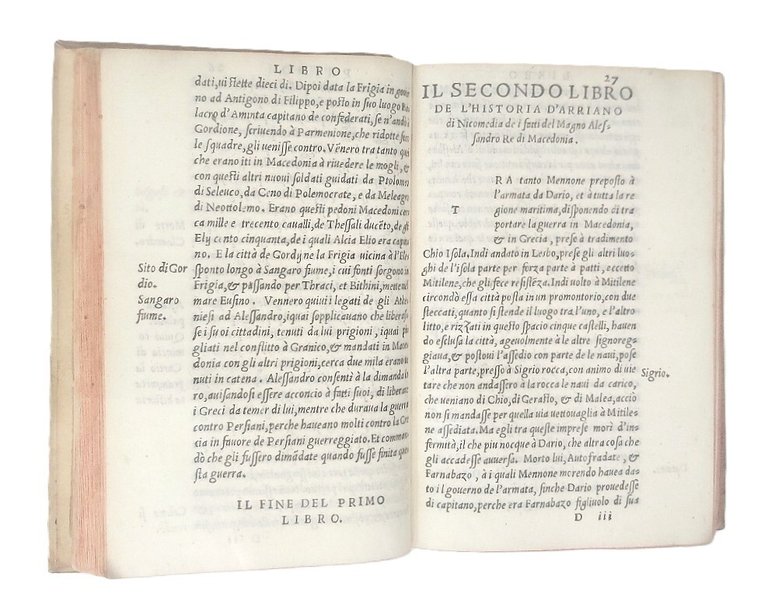 LIBRO
dati, ui stette dieci dì. Dipoi data la Frigia in gouer
no ad Antigono di Filippo, e posto in suo luogo Ba
lacro d'Aminta capitano de confederati, se n'andò i
Gordione, scriuendo à Parmenione, che ridotte
le squadre, gli uenisse contro. Vēnero tra tanto
che erano iti in Macedonia à riuedere le mogli, &
con questi altri nuoui soldati guidati da Ptolomeo
di Seleuco, da Ceno di Polemocrate, e da Meleagro
di Neottolemo. Erano questi pedoni Macedoni
ca mille e trecento caualli, de Thessali ducēto, de gli
Ely cento cinquanta, de i quali Alcia Elio era capi
no. E la città de Gordyne la Frigia uicina à l'Elle
Sito di Gor
dio.
sponto longo à Sangaro fiume, i cui fonti sorgono in
Sangaro
fiume.
Frigia, & passando per Thraci, et Bithini, mettono
mare Eusino. Vennero quiui i legati de gli Athe
niesi ad Alessandro, iquai sopplicauano che liberas
se i suoi cittadini, tenuti da lui prigioni, iquai pi
gliati nel conflitto à Granico, & mandati in Mace
donia con gli altri prigioni, cerca due mila erano te
nuti in catena. Alessandro consentì à la dimanda lo
ro, auisandosi essere acconcio à fatti suoi, di liberare
i Greci da temer di lui, mentre che duraua la guerra
contro Persiani, perche haueano molti contro la Gre
cia in fauore de Persiani guerreggiato. Et comman
dò che gli fussero dimādate quando fusse finita que
sta guerra.
IL FINE DEL PRIMO
LIBRO.
27
IL SECONDO LIBRO
DE L'HISTORIA D'ARRIANO
di Nicomedia de i fatti del Magno Ales-
sandro Re di Macedonia.
TRA tanto Mennone preposto à
l'armata da Dario, et à tutta la re
gione maritima, disponendo di tra
portare la guerra in Macedonia,
& in Grecia, prese à tradimento
Chio Isola. Indi andato in Lesbo, prese gli altri luo=
ghi de l'isola parte per forza parte à patti, eccetto
Mitilene, che gli fece resistēza. Indi uolto à Mitilene
circondò essa città posta in un promontorio, con due
steccati, quanto si stende il luogo tra l'uno, e l'altro
litto, e rizzati in questo spacio cinque castelli, hauen
do esclusa la città, ageuolmente à le altre signoreg=
giaua, & postoui l'assedio con parte de le naui, pose
l'altra parte, presso à Sigrio rocca, con animo di uie
Sigrio.
tare che non andassero à la rocca le naui da carico,
che ueniano di Chio, di Gerasto, & di Malea, acciò
non si mandasse per quella uia uettouaglia à Mitile=
ne assediata. Ma egli tra queste imprese morì d'in=
fermità, il che piu nocque à Dario, che altra cosa che
gli accadesse auuersa. Morto lui, Autofradate, &
Farnabazo, à i quali Mennone morendo hauea da=
to il gouerno de l'armata, finche Dario prouedesse
di capitano, perche era Farnabazo figliuolo di sua
D iii